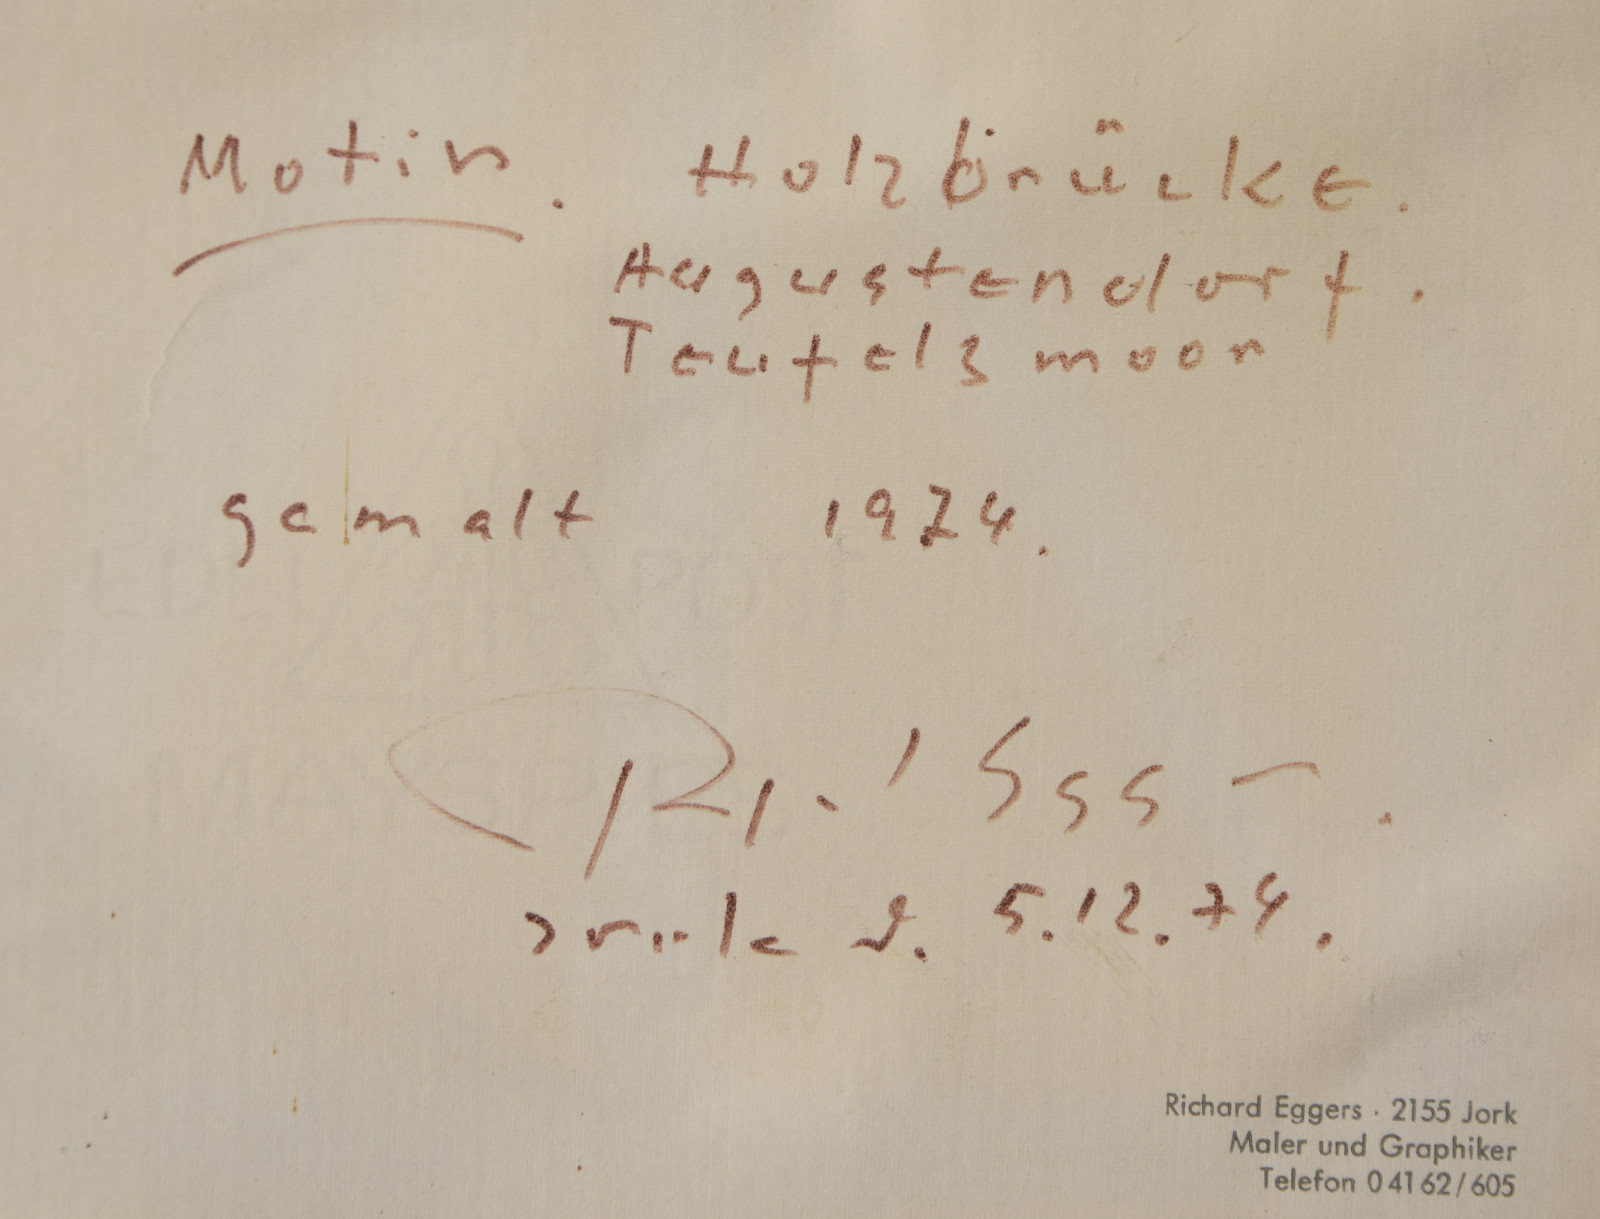 Motiv. Holzbrücke.
Augustendorf.
Teufelsmoor
gemalt 1974.
Rich. Eggers.
d. 5.12.74.
Richard Eggers · 2155 Jork
Maler und Graphiker
Telefon 0 41 62 / 605